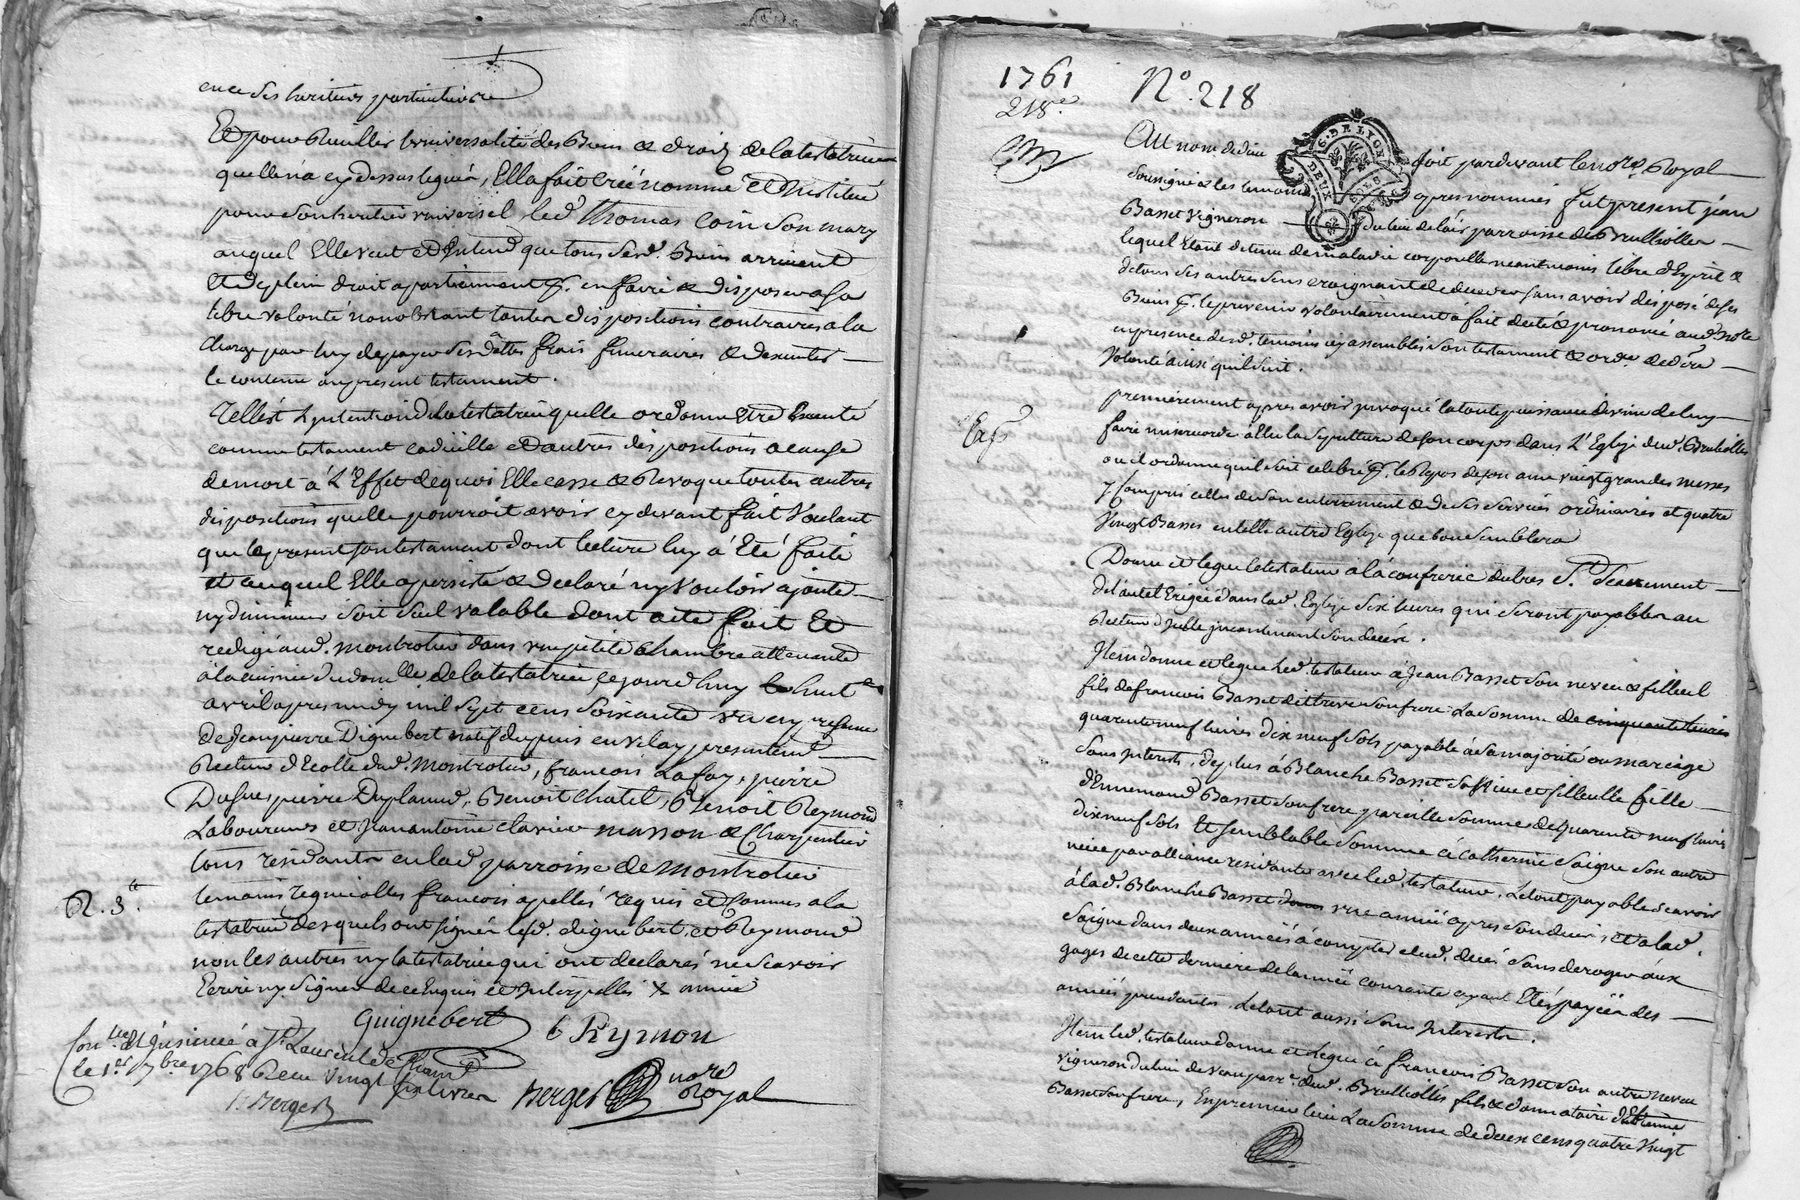 en ce ses heritiers particuliers
Et pour Recuillir l'universalité des Biens & droits de la testatrice
quelle n'a cy dessus legués, Ella fait Créé nommé Et Institué
pour son heritier universel, led. Thomas Coin son mary
auquel Elle veut et Entend que tous sesd. Biens arrivent
Et de plein droit apartiennent p. en faire & disposer a sa
libre volonté nonobstant toutes dispositions contraires a la
Charge par luy de payer ses dettes frais funeraires & dexecuter
le contenu au present testament.
Telle est L'intention de la testatrice quelle ordonne Etre Executé
comme testament codicille et d'autres dispositions a cause
de mort à L'Effet de quoi Elle casse & Revoque toutes autres
dispositions quelle pourroit avoir cy devant fait Voulant
que le present son testament dont lecture luy à Eté faite
et auquel Elle a persisté & declaré ny Vouloir ajouter
ny diminuer soit seul valable dont acte fait Et
redigé aud. montrotier dans une petite chambre attenante
à la cuisine du domlle de la testatrice, cejourd'huy huit
avril apres midy mil Sept cens soixante un en presence
de Jean pierre Diguebert natif du puis en vélay presentement
Recteur d'Ecolle dud. Montrotier, françois Lafay, pierre
Dupuy pierre Duplamd, Benoit Chatel, Benoit Reymond
Laboureurs et Jean antoine clavier masson & Charpentier
tous residants en lad. parroisse de Montrotier
temoins françois apellés requis et connus a la
testatrice desquels ont signés lesd. diguebert, et Reymond
non les autres ny la testatrice qui ont declarés ne scavoir
Ecrire ny Signer de ce Enquis et Interpellés
R. 3.te
Guiguebert b Reymon
Con.llé & Insinué à St Laurent de Cham.
le 1er 7bre 1768 Reçu vingt
Berger
Berger nore
Royal
1761 N° 218
218.e
Au nom de dieu soit pardevant le nore. Royal
soussigné & les temoins apres nommés fut present jean
Basset vigneron du lieu de lair parroisse de Brulliolles
lequel Etant detenu de maladie corporelle neantmoins libre d'Esprit &
de tous ses autres sens craignant de deceder sans avoir disposé de ses
Biens p. le prevenir volontairement à fait dicté & prononcé aud. Note
en presence desd. temoins cy assemblés son testament & ordre. de dre
Volonté ainsi quil suit.
premierement apres avoir invoqué la toute puissance divine de luy
faire misericorde à Elu la sepulture de son corps dans L'Eglise dud. Brulliolles
ou il ordonne quil soit celebré p. le Repos de son ame vingt grandes messes
y compris celles de son enterrement & de ses services ordinaires et quatre
Vingt Basses en telle autre Eglise que bon semblera
Donne et legue le testateur a la confrerie du tres St. Sacrement
de l'autel Erigée dans lad. Eglise six livres qui seront payables au
Recteur d'icelle incontinant son decés.
Item donne et legue led. testateur à Jean Basset son neveu & filleul
fils de francois Basset son frere la somme de cinquante livres
quarante neuf livres dix neuf sols payable à sa majorité ou mariage
sans interets, de plus à Blanche Basset sa niece et filleulle fille
d'Ennemond Basset son frere pareille somme de quarante neuf livres
dix neuf sols Et semblable somme à catherine Saigne son autre
niece par alliance residante avec led. testateur, le tout payable scavoir
à lad. Blanche Basset une année apres son decés, et a lad.
Saigne dans deux années à compter dud. decés sans deroger aux
gages de cette derniere de l'année courante ayant Eté payée des
années precedantes, le tout aussi sans Interets.
Item led. testateur donne et legue à francois Basset son autre neveu
vigneron du lieu de parr.e dud. Brulliolles fils & donnataire d'Etienne
Basset son frere, En premier lieu La somme de deux cens quatre vingt
Exp
G. DE LYON
DEUX SOLS